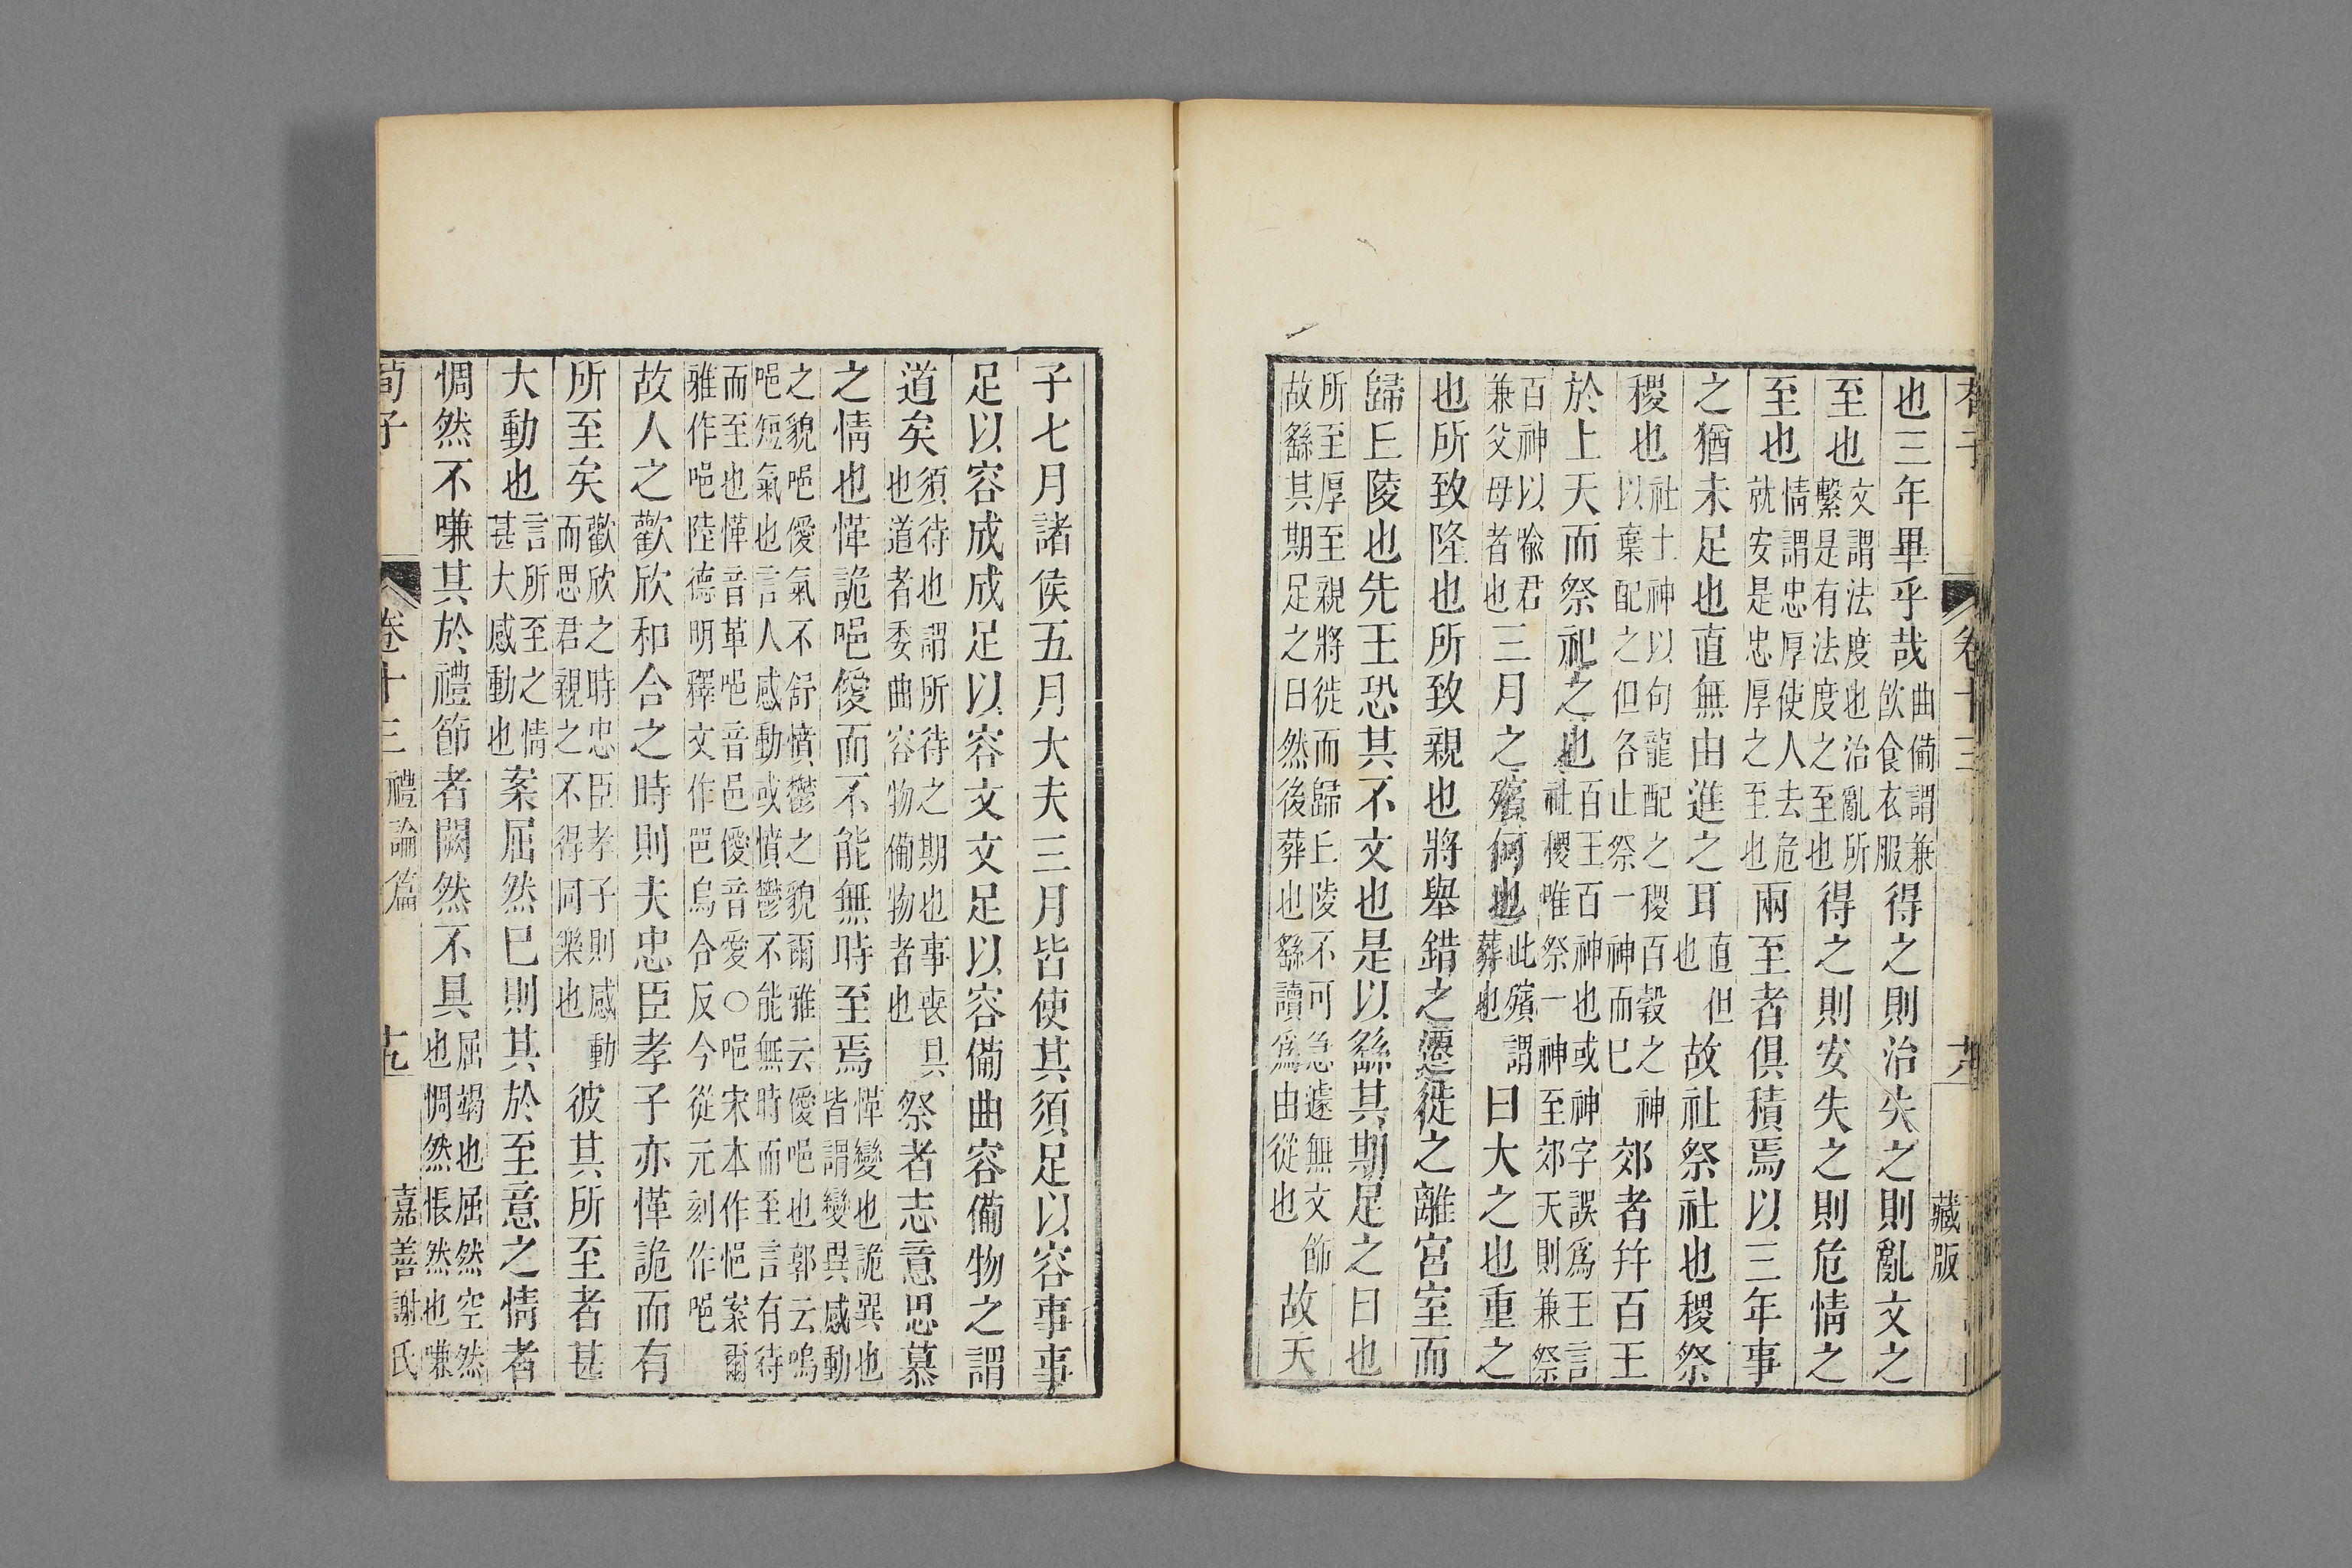 荀子 卷十三 十八 藏版
也三年畢乎哉曲備謂兼飲食衣服得之則治失之則亂文之
至也文謂法度也治亂所繫是有法度之至也得之則安失之則危情之
至也情謂忠厚使人去危就安是忠厚之至也兩至者俱積焉以三年事
之猶未足也直無由進之耳直但也故社祭社也稷祭
稷也社土神以句龍配之稷百穀之神以棄配之但各止祭一神而已郊者并百王
於上天而祭祀之也百王百神也或神字誤爲王言社稷唯祭一神至郊天則兼祭
百神以喻君兼父母者也三月之殯何也此殯謂葬也曰大之也重之
也所致隆也所致親也將舉錯之遷徙之離宮室而
歸丘陵也先王恐其不文也是以繇其期足之日也
所至厚至親將徙而歸丘陵不可急遽無文飾故繇其期足之日然後葬也繇讀爲由從也故天
子七月諸侯五月大夫三月皆使其須足以容事事
足以容成成足以容文文足以容備曲容備物之謂
道矣須待也謂所待之期也事喪具也道者委曲容物備物者也祭者志意思慕
之情也愅詭唈僾而不能無時至焉愅變也詭異也皆謂變異感動
之貌唈僾氣不舒憤鬱之貌爾雅云僾唈也郭云嗚唈短氣也言人感動或憤鬱不能無時而至言有待
而至也愅音革唈音邑僾音愛○唈宋本作悒案爾雅作唈陸德明釋文作邑烏合反今從元刻作唈
故人之歡欣和合之時則夫忠臣孝子亦愅詭而有
所至矣歡欣之時忠臣孝子則感動而思君親之不得同樂也彼其所至者甚
大動也言所至之情甚大感動也案屈然已則其於至意之情者
惆然不嗛其於禮節者闕然不具屈竭也屈然空然也惆然悵然也嗛
荀子 卷十三 禮論篇 十九 嘉善謝氏